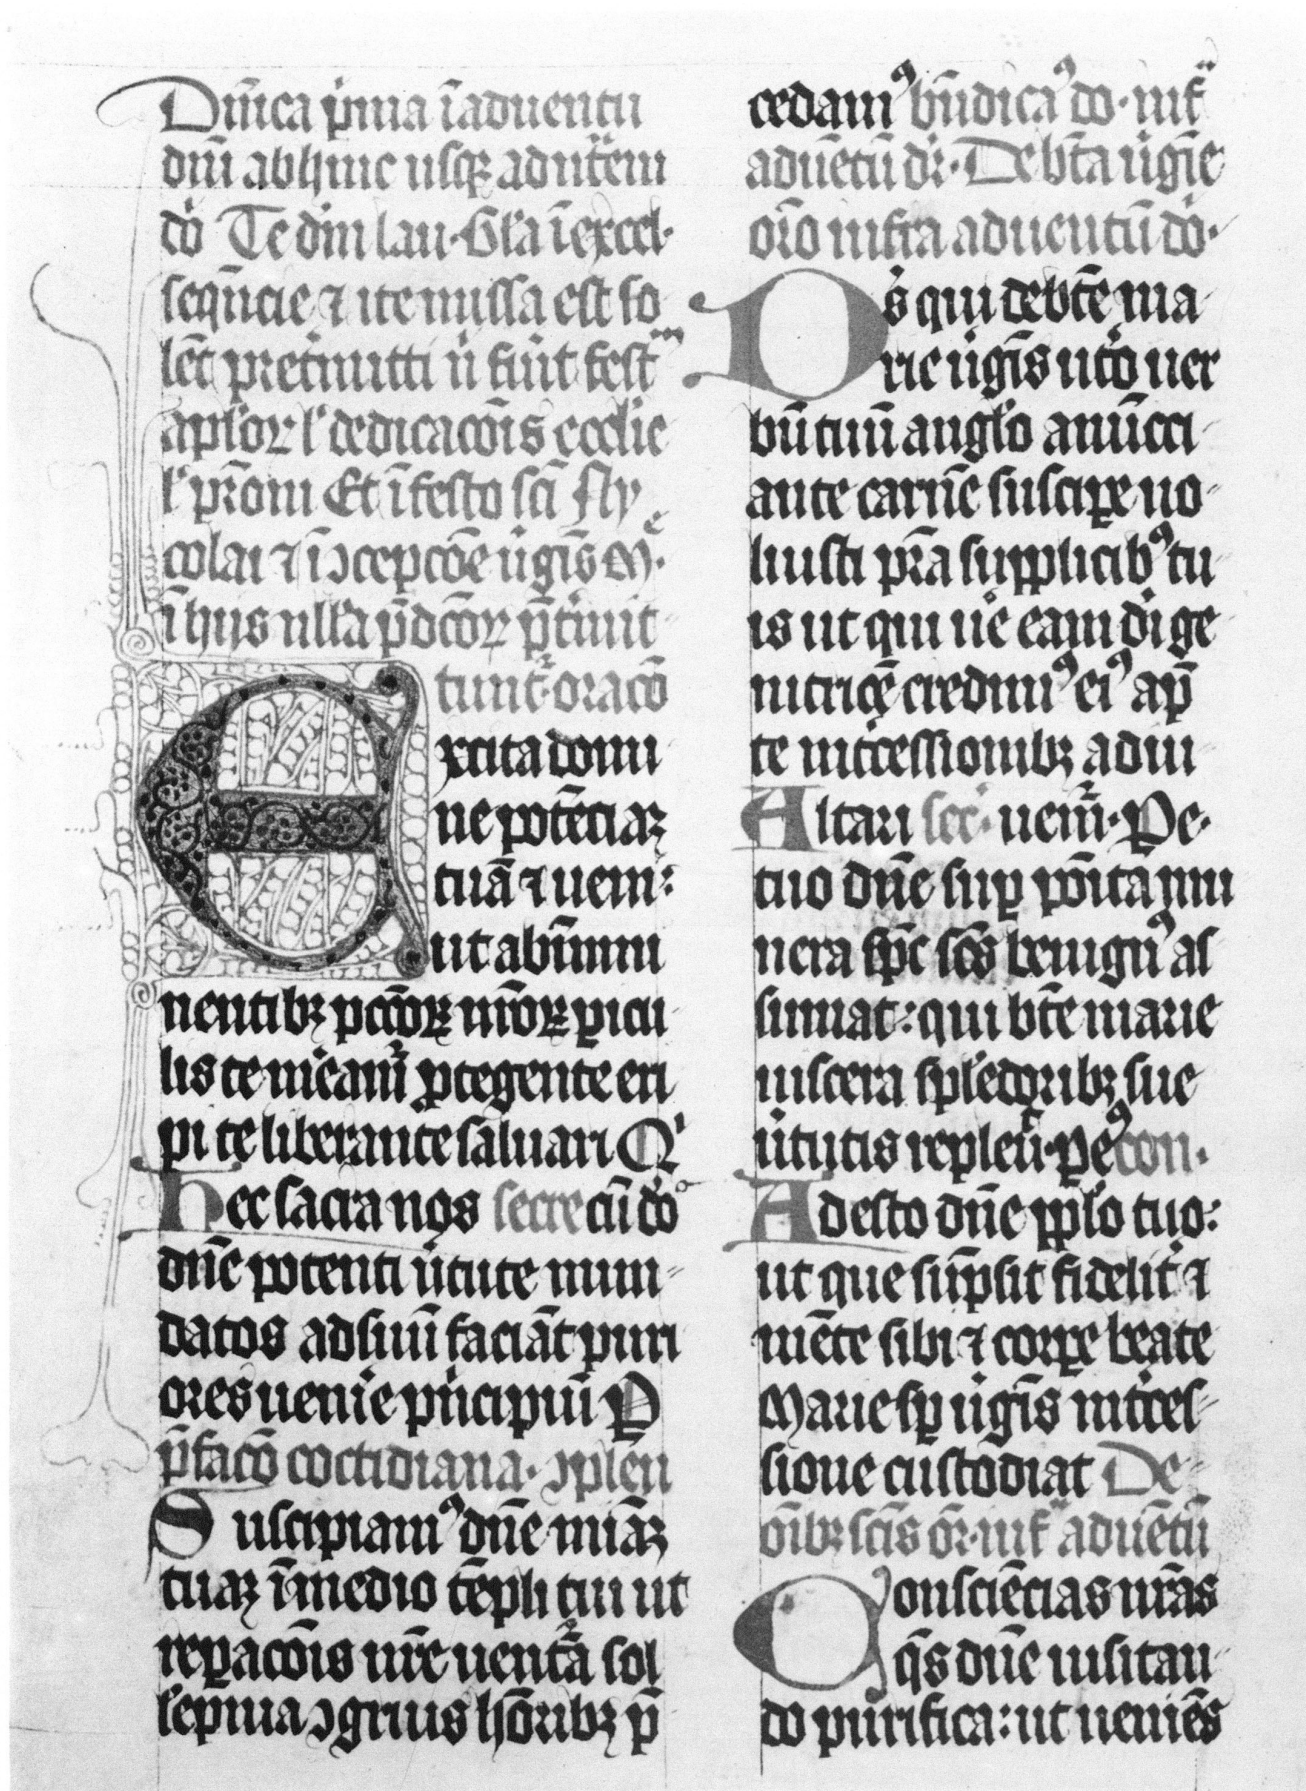 Dnīca p̄ma ī aduentu
dn̄i ab hinc usq̨ ad nr̄tem
dō Te dm̄ lau. Gl'a ī excel.
seqn̄cie ⁊ ite missa est so
lēt pretmitti n̄ fiūt fest
apl'oꝝ l' dedicacōis ecclīe
l' pr̄oni Et ī festo scī Ny
colai ⁊ ī ↄcepcōe ūgīs M.
ī hijs nll'a p̄dc̄oꝝ p̄tmit
tunt̄. oracō
Excita domi
ne potēciaꝫ
tuā ⁊ ueni:
ut ab īmmi
nentibꝫ pcc̄oꝝ nr̄oꝝ ꝑicu
lis te mēamᷣ ꝓtegente eri
pi te liberante saluari Qⁱ
Hec sacra nos secre cū dō
dn̄e potenti ūtute mun
datos ad suū faciāt puri
ores uenīe pⁱncipiū P
p̄facō cottidiana. ↄplen
Suscipiamꝰ dn̄e mīaꝫ
tuaꝫ ī medio tēpli tui ut
reꝑacōis nr̄e uentᷓa sol
lēpnia ↄgruis hōribꝫ p̄
cedamꝰ bn̄dicaꝰ do. inf̄ᷓ
aduētū dn̄. De btā ūgīe
or̄o infra aduentū dō.
Ds̄ qui de btē ma
rie ūgīs uto uer
bū tuū angl'o anūcci
ante carnē susciꝑe uo
luisti pr̄a supplicibꝰ tu
is ut qui ue eam di ge
nitricē credimꝰ eiꝰ ap̄
te int̄cessionibꝫ adiu
Altari sec̄. uenīᷓ. Pe.
tuo dn̄e suꝑ pōita mu
nera sp̄c scs̄ benignꝰ as
sumat: qui btē marie
uiscera splēdoribꝫ sue
ūtutis repleuᷓ. Peꝰ con.
Adesto dn̄e pp̄lo tuo:
ut que sūpsit fidelit̄ ⁊
mēte sibi ⁊ corꝑe beate
Marie sꝑ ūgīs int̄ces
sione custodiat De
oībꝫ scīs or̄. inf̄ᷓ aduētū
Conscīecias nr̄as
qs̄ dn̄e uisitan
do purifica: ut ueniēs